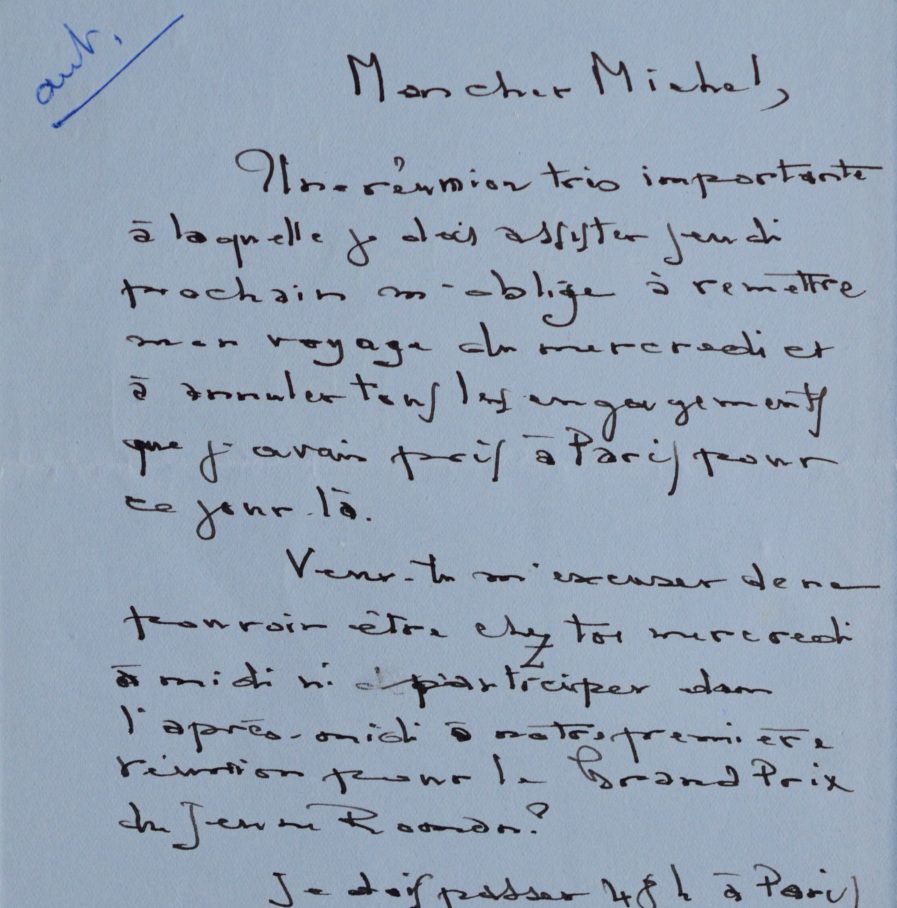 aut.
Mon cher Michel,
Une réunion très importante
à laquelle je dois assister jeudi
prochain m'oblige à remettre
mon voyage du mercredi et
à annuler tous les engagements
que j'avais pris à Paris pour
ce jour-là.
Veux-tu m'excuser de ne
pouvoir être chez toi mercredi
à midi ni participer dans
l'après-midi à notre première
réunion pour le Grand Prix
du Jeune Roman?
Je dois passer 48 h à Paris